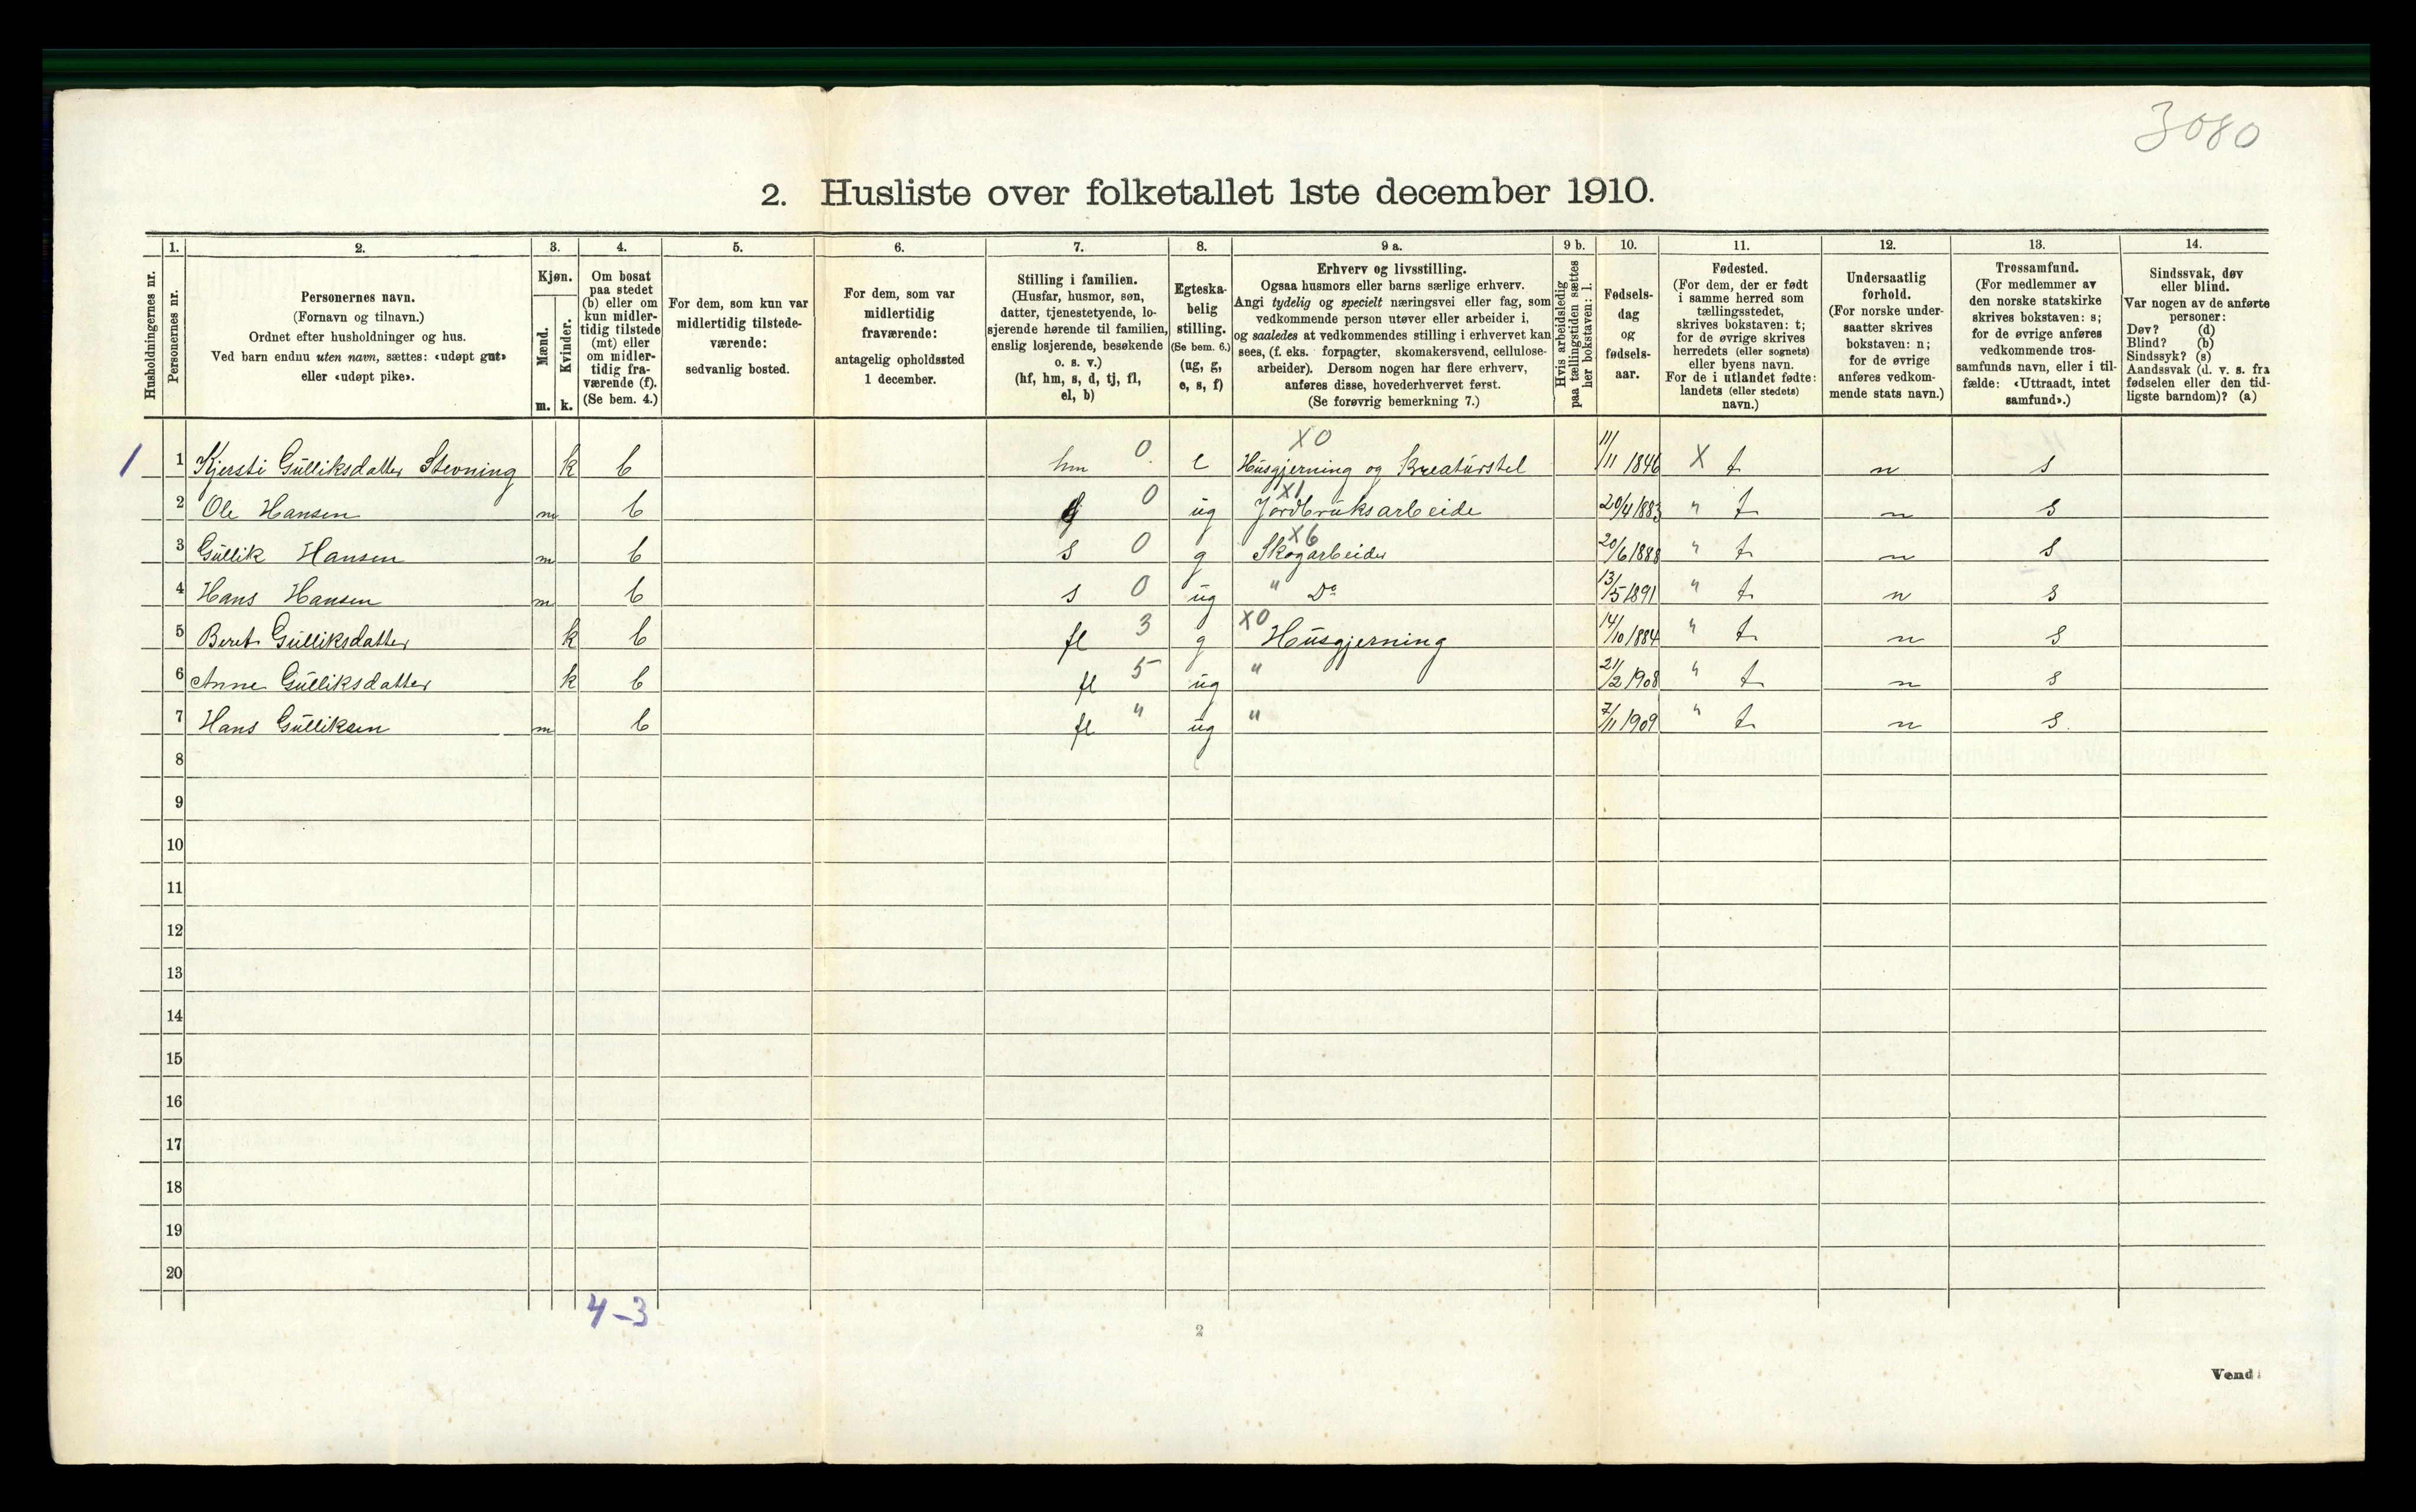 3080
2. Husliste over folketallet 1ste december 1910.
1. 2. 3. 4. 5. 6. 7. 8. 9 a. 9 b. 10. 11. 12. 13. 14.
Husholdningernes nr.
Personernes nr.
Personernes navn.
(Fornavn og tilnavn.)
Ordnet efter husholdninger og hus.
Ved barn endnu uten navn, sættes: «udøpt gut»
eller «udøpt pike».
Kjøn.
Mænd.
Kvinder.
m. k.
Om bosat
paa stedet
(b) eller om
kun midler-
tidig tilstede
(mt) eller
om midler-
tidig fra-
værende (f).
(Se bem. 4.)
For dem, som kun var
midlertidig tilstede-
værende:
sedvanlig bosted.
For dem, som var
midlertidig
fraværende:
antagelig opholdssted
1 december.
Stilling i familien.
(Husfar, husmor, søn,
datter, tjenestetyende, lo-
sjerende hørende til familien,
enslig losjerende, besøkende
o. s. v.)
(hf, hm, s, d, tj, fl,
el, b)
Egteska-
belig
stilling.
(Se bem. 6.)
(ug, g,
e, s, f)
Erhverv og livsstilling.
Ogsaa husmors eller barns særlige erhverv.
Angi tydelig og specielt næringsvei eller fag, som
vedkommende person utøver eller arbeider i,
og saaledes at vedkommendes stilling i erhvervet kan
sees, (f. eks. forpagter, skomakersvend, cellulose-
arbeider). Dersom nogen har flere erhverv,
anføres disse, hovederhvervet først.
(Se forøvrig bemerkning 7.)
Hvis arbeidsledig
paa tællingstiden sættes
her bokstaven: l.
Fødsels-
dag
og
fødsels-
aar.
Fødested.
(For dem, der er født
i samme herred som
tællingsstedet,
skrives bokstaven: t;
for de øvrige skrives
herredets (eller sognets)
eller byens navn.
For de i utlandet fødte:
landets (eller stedets)
navn.)
Undersaatlig
forhold.
(For norske under-
saatter skrives
bokstaven: n;
for de øvrige
anføres vedkom-
mende stats navn.)
Trossamfund.
(For medlemmer av
den norske statskirke
skrives bokstaven: s;
for de øvrige anføres
vedkommende tros-
samfunds navn, eller i til-
fælde: «Uttraadt, intet
samfund».)
Sindssvak, døv
eller blind.
Var nogen av de anførte
personer:
Døv? (d)
Blind? (b)
Sindssyk? (s)
Aandssvak (d. v. s. fra
fødselen eller den tid-
ligste barndom)? (a)
1 1 Kjersti Gulliksdatter Stevning k b hm 0 e X0 Husgjerning og Kreaturstel 11/11 1846 X t n s
2 Ole Hansen m b 0 ug X1 Jordbruksarbeide 20/4 1883 " t n s
3 Gullik Hansen m b s 0 g X6 Skogarbeider 20/6 1888 " t n s
4 Hans Hansen m b s 0 ug " Do 13/5 1891 " t n s
5 Beret Gulliksdatter k b fl 3 g X0 Husgjerning 14/10 1884 " t n s
6 Anne Gulliksdatter k b fl 5 ug " 21/2 1908 " t n s
7 Hans Gulliksen m b fl " ug " 7/11 1909 " t n s
8
9
10
11
12
13
14
15
16
17
18
19
20
4-3
2
Vend!